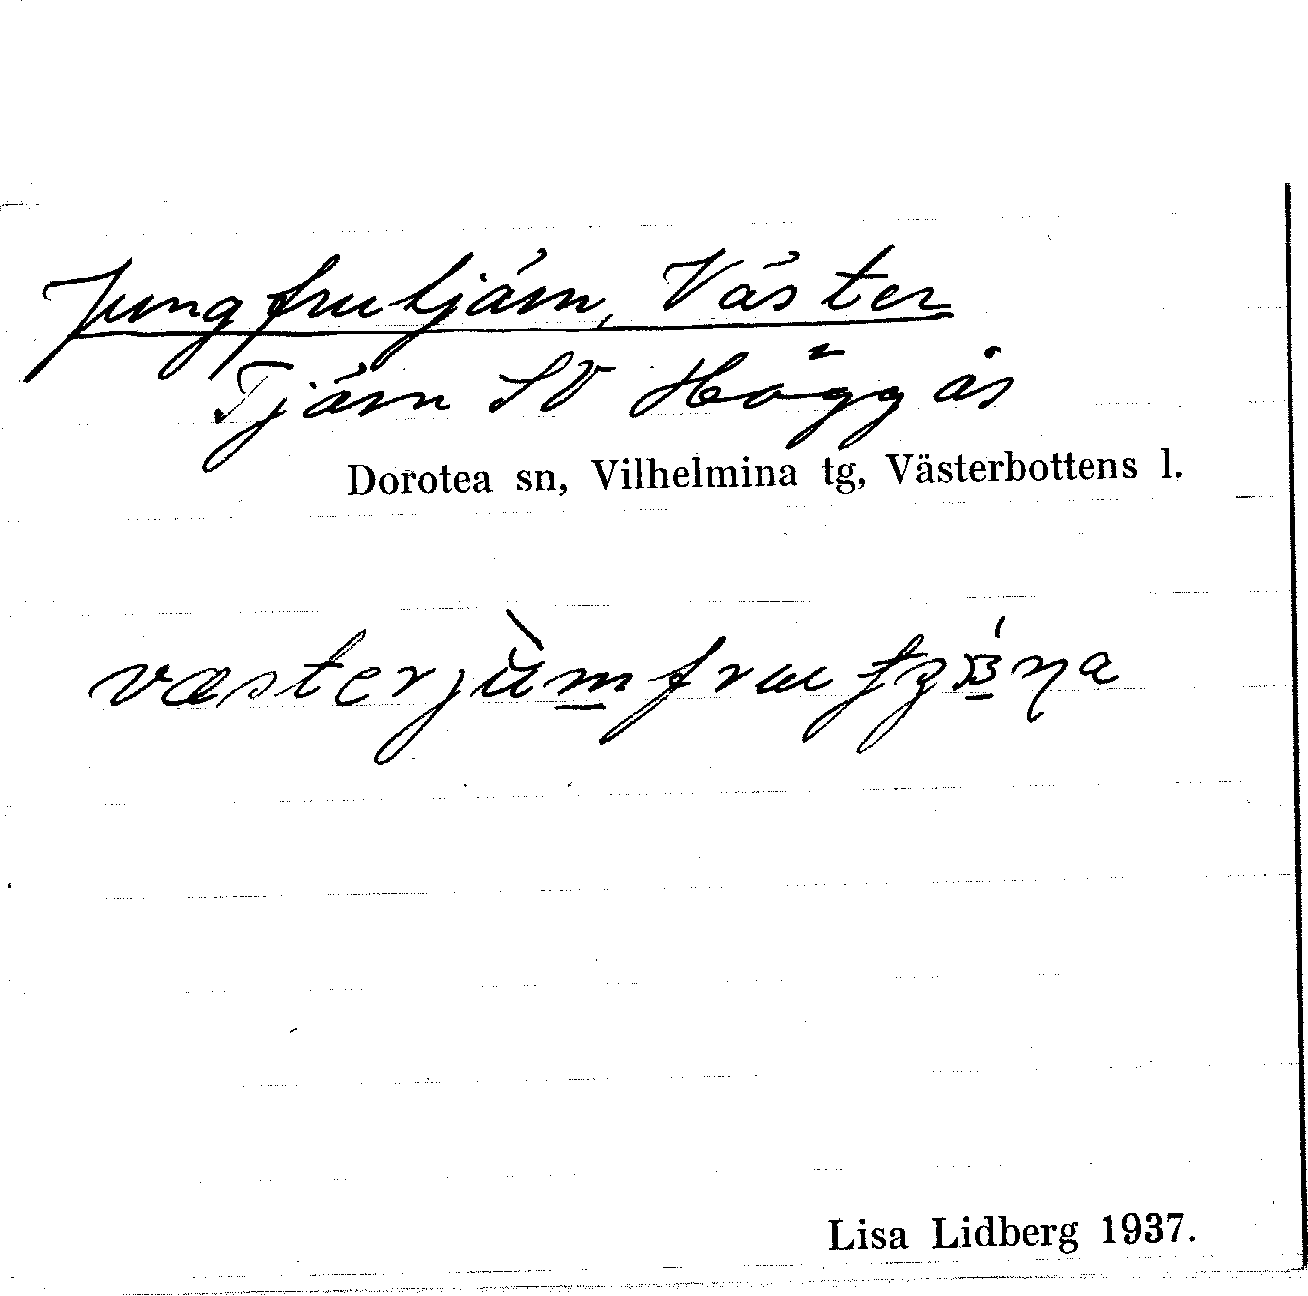 Jungfrutjärn, Väster
Tjärn SV Höggås
Dorotea sn, Vilhelmina tg, Västerbottens l.
Lisa Lidberg 1937.